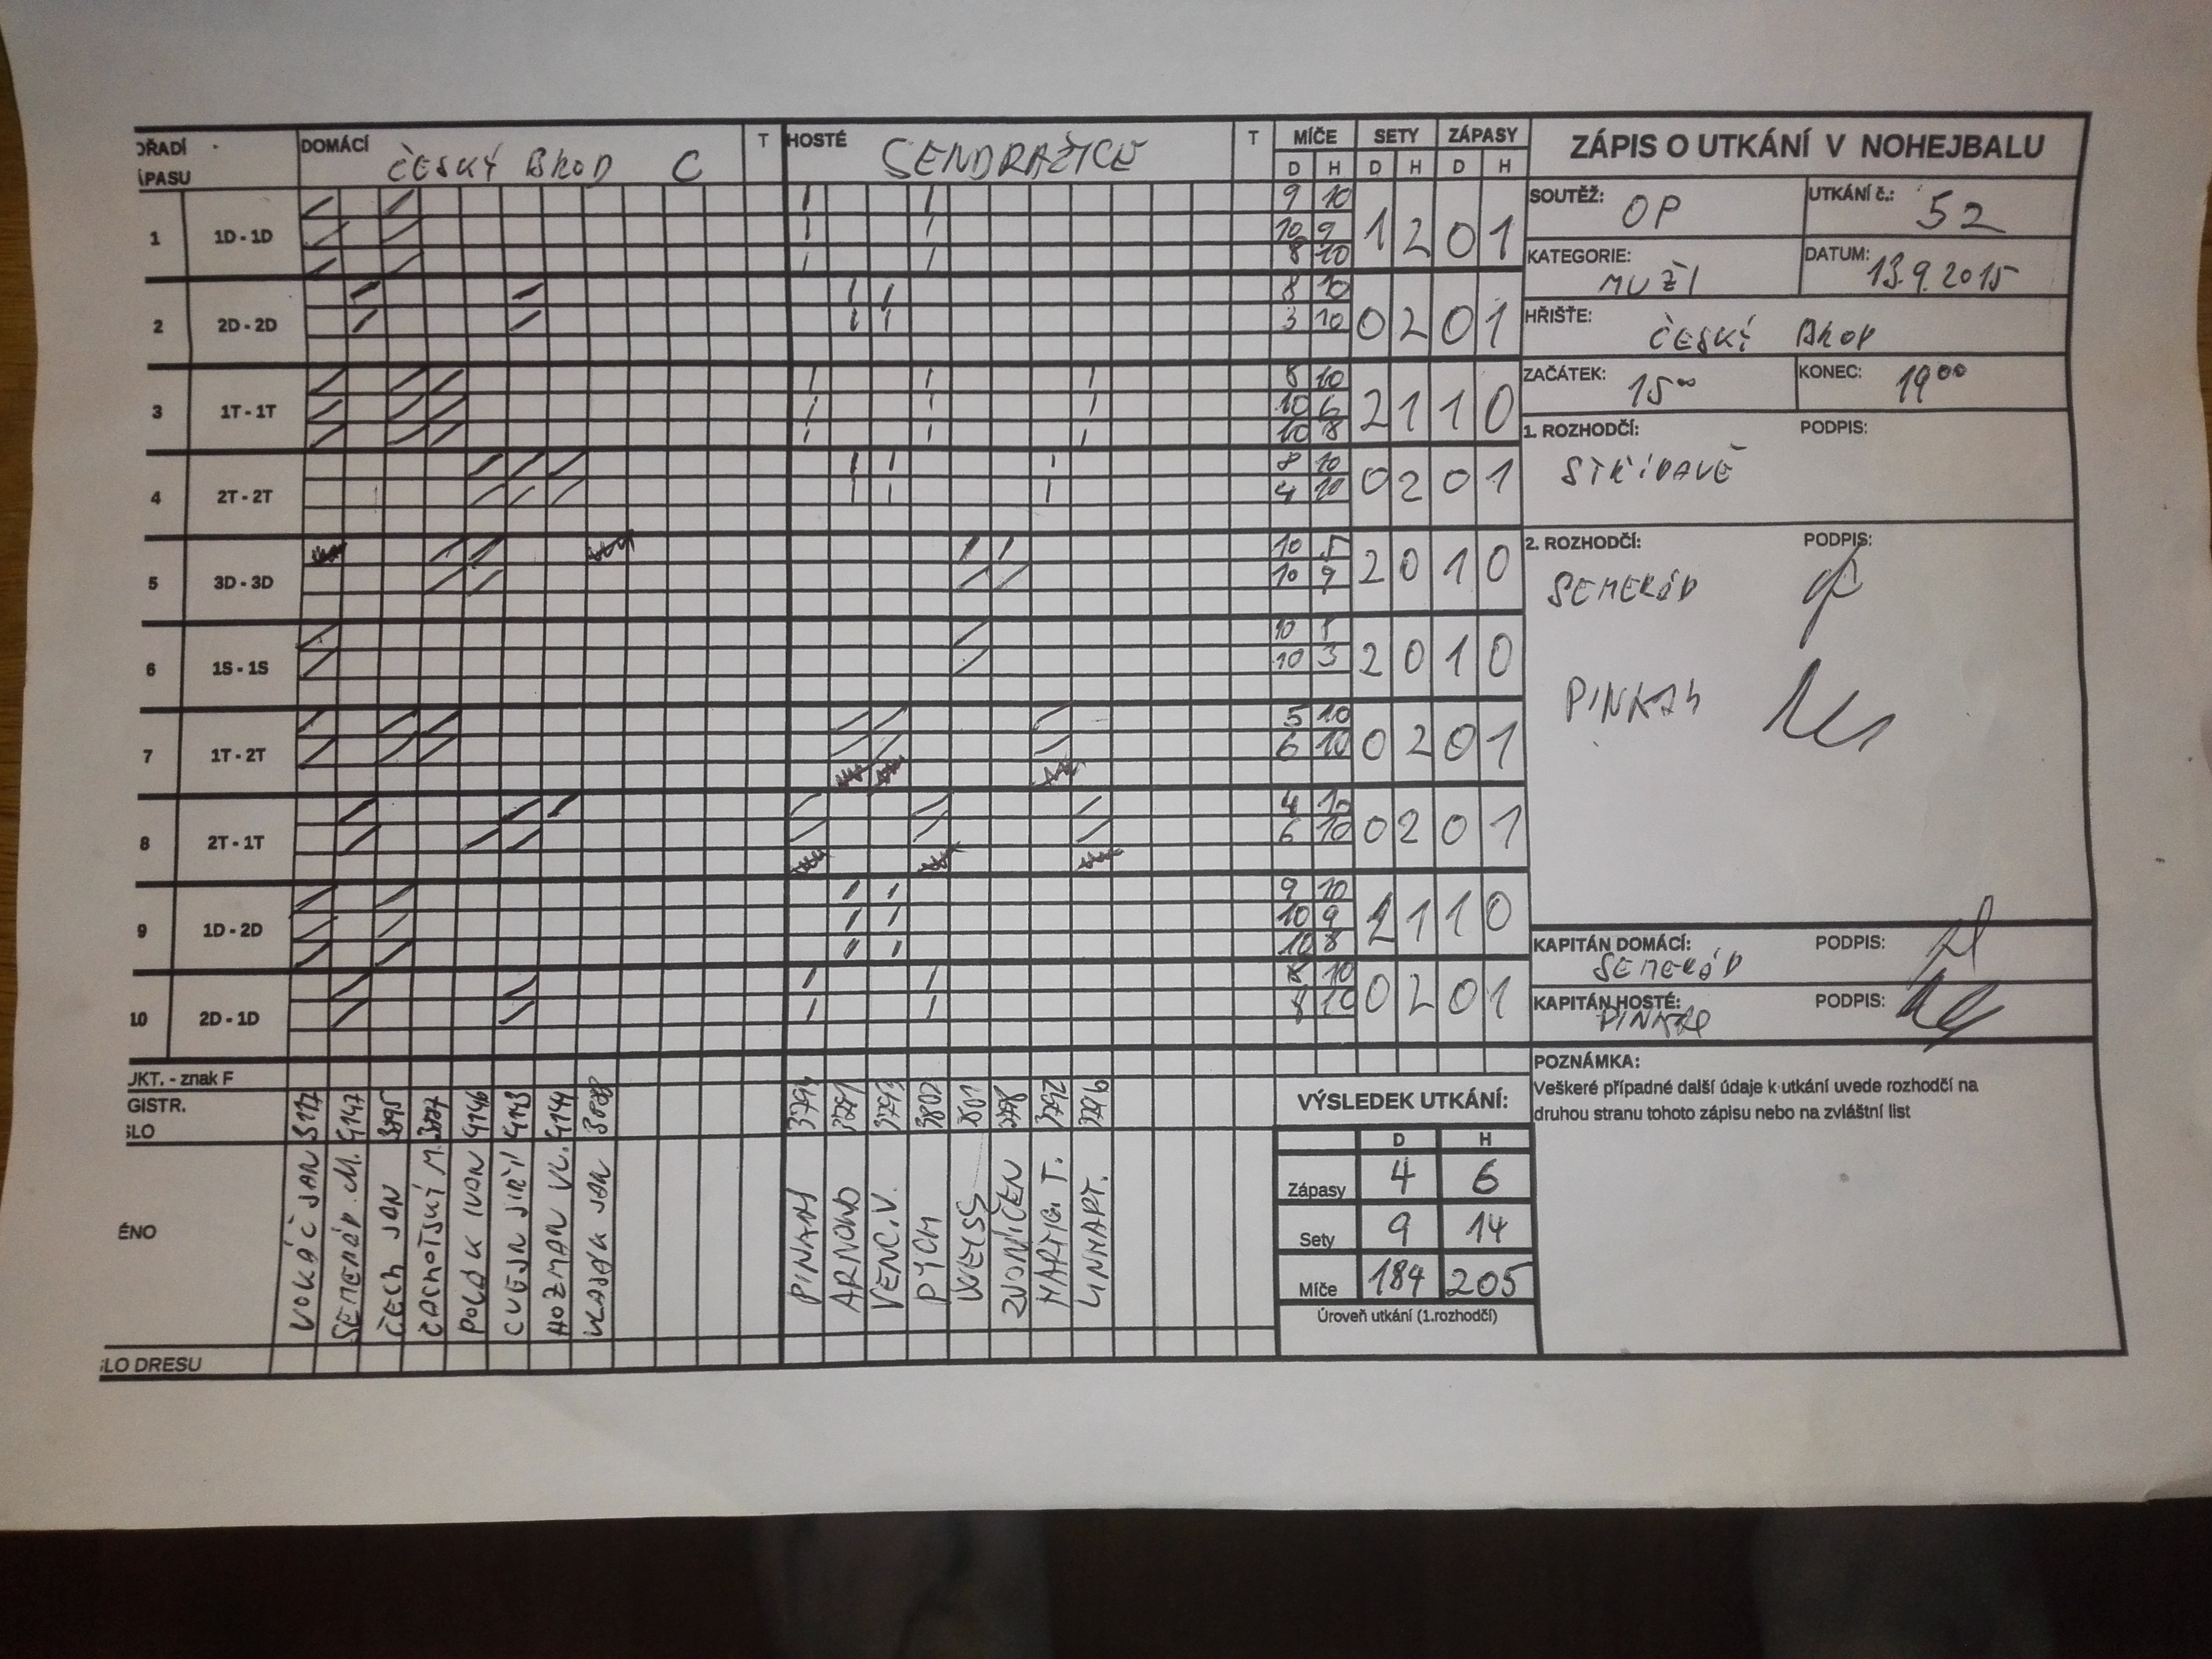 ZÁPIS O UTKÁNÍ V NOHEJBALU
ŘADÍ
PASU
DOMÁCÍ ČESKÝ BROD C
T
HOSTÉ SENDRAŽICE
T
MÍČE SETY ZÁPASY
D H D H D H
1 1D - 1D 9 10 1 2 0 1
10 9
8 10
2 2D - 2D 8 10 0 2 0 1
3 10
3 1T - 1T 8 10 2 1 1 0
10 6
10 8
4 2T - 2T 8 10 0 2 0 1
4 10
5 3D - 3D 10 5 2 0 1 0
10 9
6 1S - 1S 10 2 0 1 0
10 3
7 1T - 2T 5 10 0 2 0 1
6 10
8 2T - 1T 4 10 0 2 0 1
6 10
9 1D - 2D 9 10 2 1 1 0
10 9
10 8
10 2D - 1D 10 0 2 0 1
8 10
SOUTĚŽ: OP
UTKÁNÍ č.: 52
KATEGORIE: MUŽI
DATUM: 13.9.2015
HŘIŠTE: ČESKÝ BROD
ZAČÁTEK: 15⁰⁰
KONEC: 19⁰⁰
1. ROZHODČÍ: PODPIS:
STŘÍDAVĚ
2. ROZHODČÍ: PODPIS:
SEMERÁD
KAPITÁN DOMÁCÍ: PODPIS:
SEMERÁD
KAPITÁN HOSTÉ: PODPIS:
POZNÁMKA:
Veškeré případné další údaje k utkání uvede rozhodčí na
druhou stranu tohoto zápisu nebo na zvláštní list
UKT. - znak F
GISTR.
SLO
4147 4146 4143 3802 3792
ÉNO
SEMERÁD M.
ČECH JAN
POLÁK IVAN
HOZMAN VL.
ARNOLD
VENC. V.
PYCH
WEISS
ZVONÍČEK
HARTIG T.
LINHART.
SLO DRESU
VÝSLEDEK UTKÁNÍ:
D H
Zápasy 4 6
Sety 9 14
Míče 184 205
Úroveň utkání (1.rozhodčí)